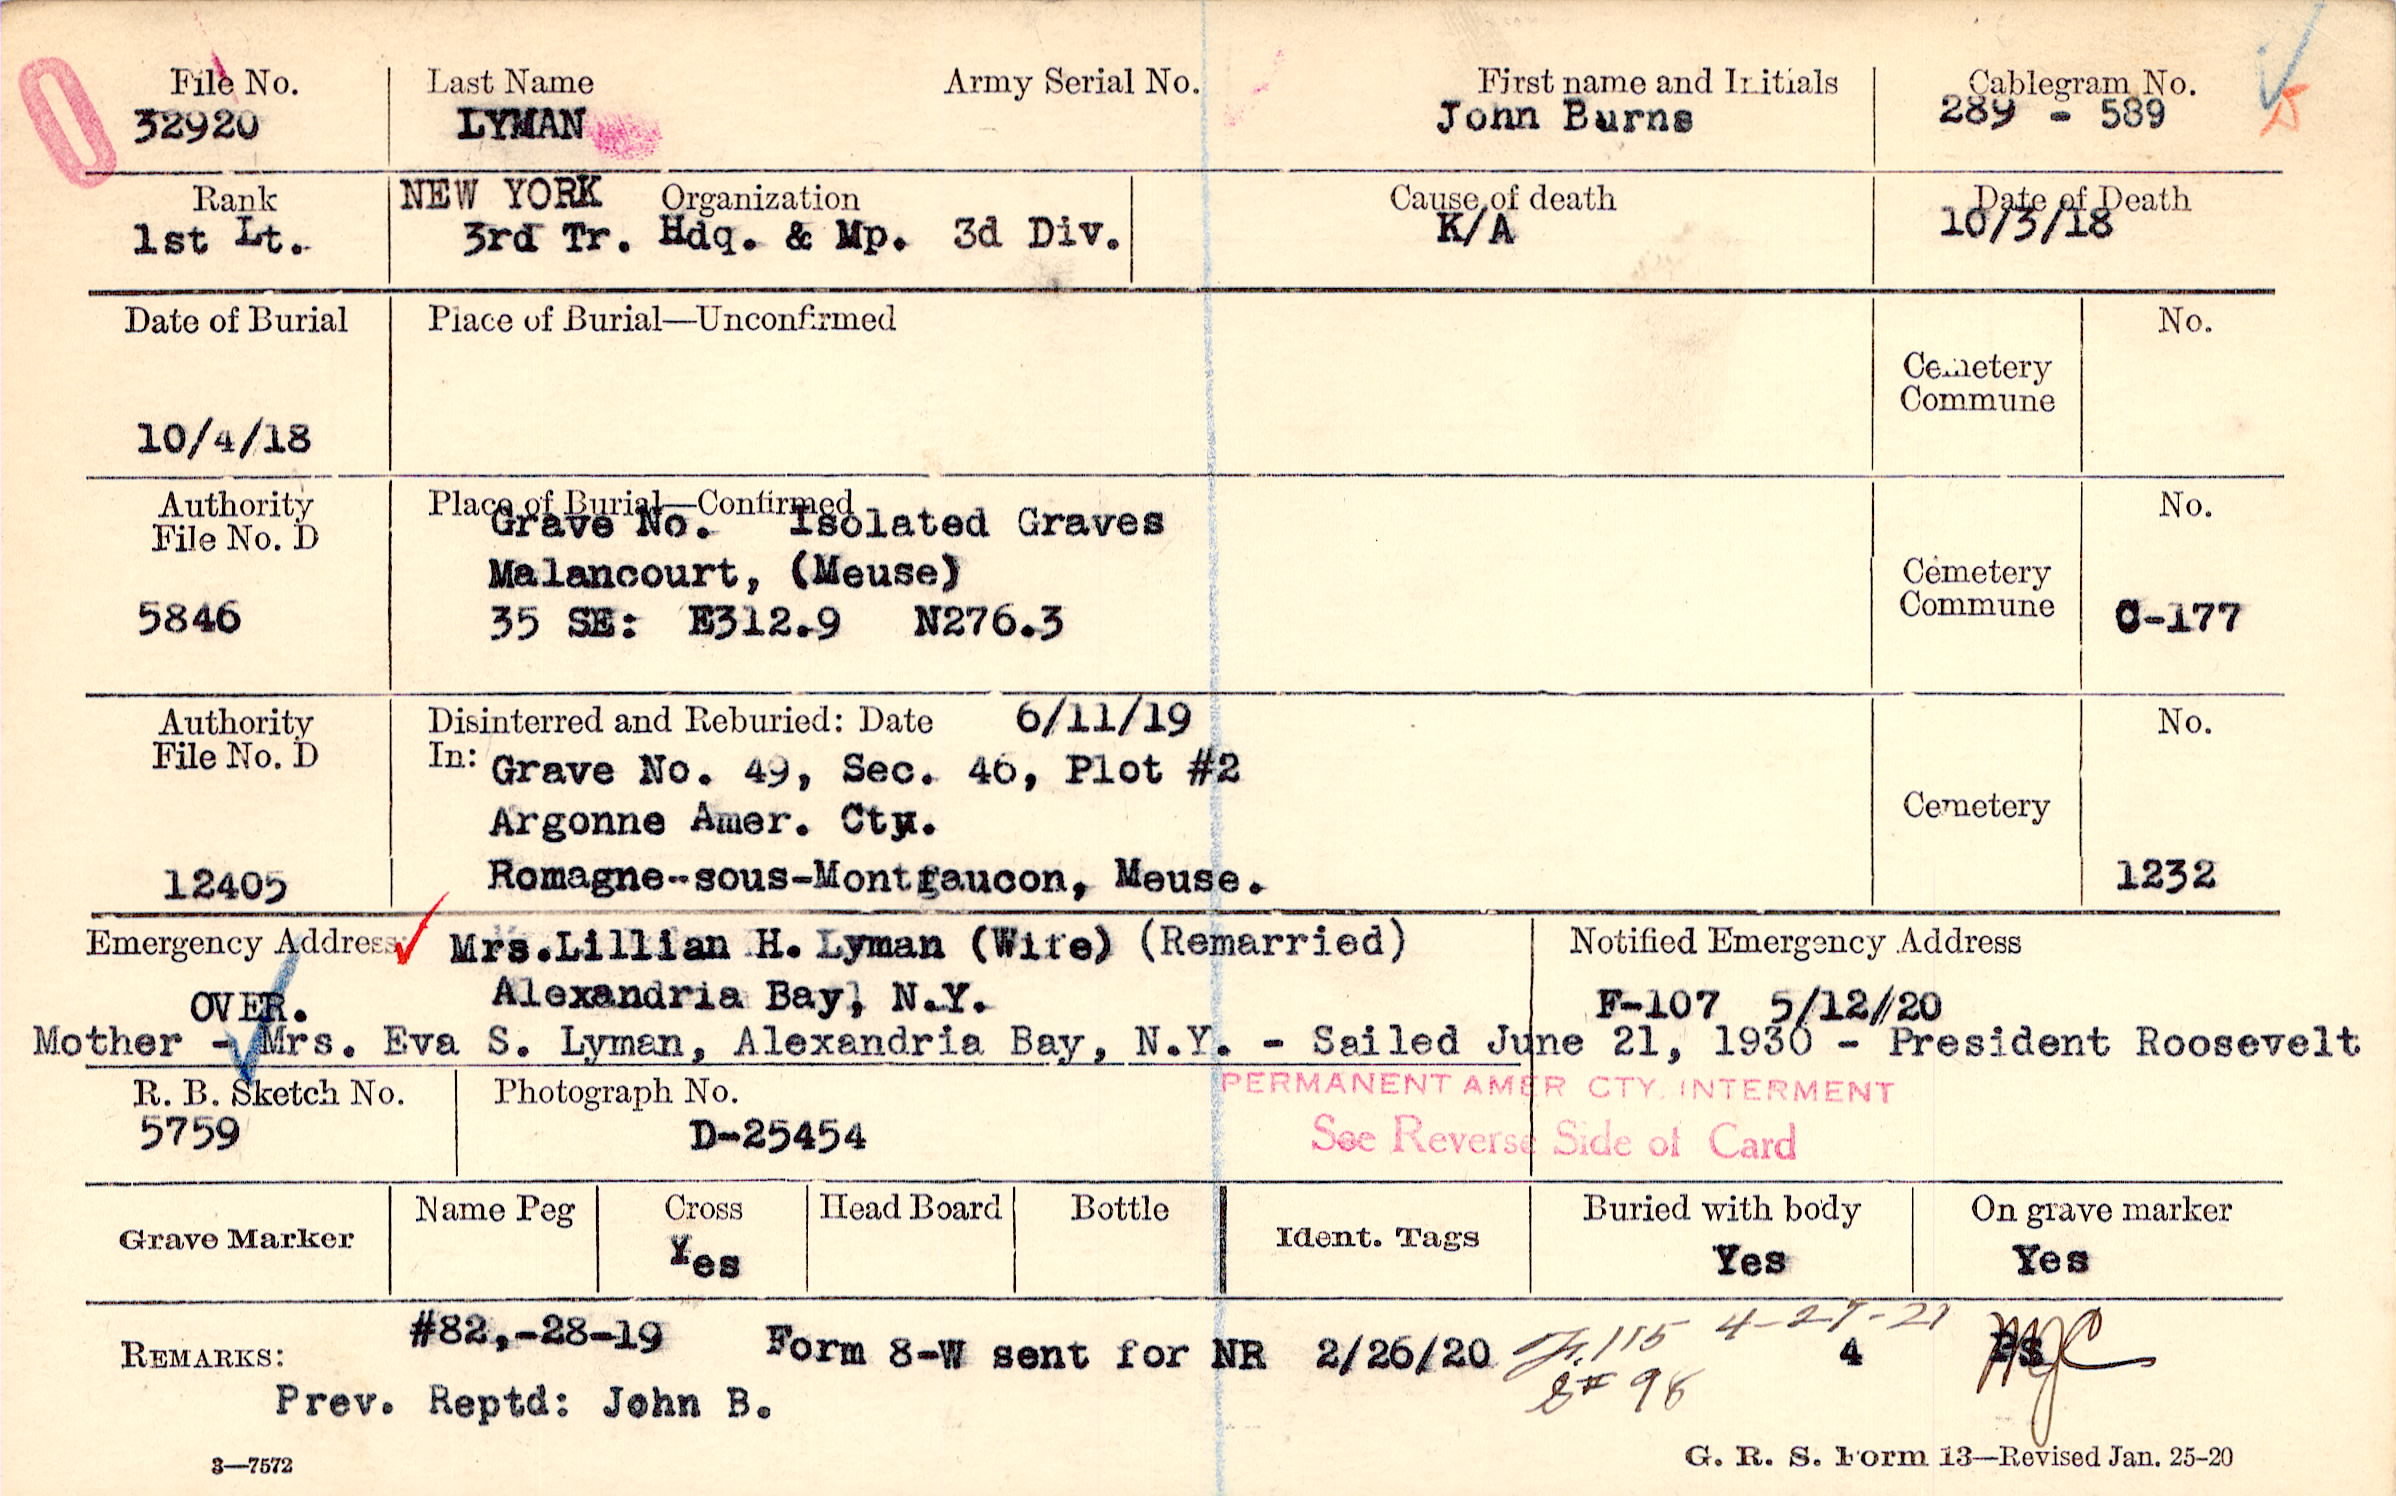 File No. Last Name Army Serial No. First name and Initials Cablegram No.
32920 LYMAN John Burns 289 - 589
Rank NEW YORK Organization Cause of death Date of Death
1st Lt. 3rd Tr. Hdq. & Mp. 3d Div. K/A 10/3/18
Date of Burial Place of Burial—Unconfirmed No.
Cemetery
Commune
10/4/18
Authority Place of Burial—Confirmed No.
File No. D Grave No. Isolated Graves
Malancourt, (Meuse) Cemetery
5846 35 SE: E312.9 N276.3 Commune C-177
Authority Disinterred and Reburied: Date 6/11/19 No.
File No. D In: Grave No. 49, Sec. 46, Plot #2
Argonne Amer. Cty. Cemetery
12405 Romagne-sous-Montfaucon, Meuse. 1232
Emergency Address Mrs.Lillian H. Lyman (Wife) (Remarried) Notified Emergency Address
OVER. Alexandria Bay, N.Y. F-107 5/12//20
Mother - Mrs. Eva S. Lyman, Alexandria Bay, N.Y. - Sailed June 21, 1930 - President Roosevelt
R. B. Sketch No. Photograph No. PERMANENT AMER CTY. INTERMENT
5759 D-25454 See Reverse Side of Card
Grave Marker Name Peg Cross Head Board Bottle Ident. Tags Buried with body On grave marker
Yes Yes Yes
REMARKS: #82,-28-19 Form 8-W sent for NR 2/26/20 115 4-27-21 4
8# 98
Prev. Reptd: John B.
3—7572 G. R. S. Form 13—Revised Jan. 25-20